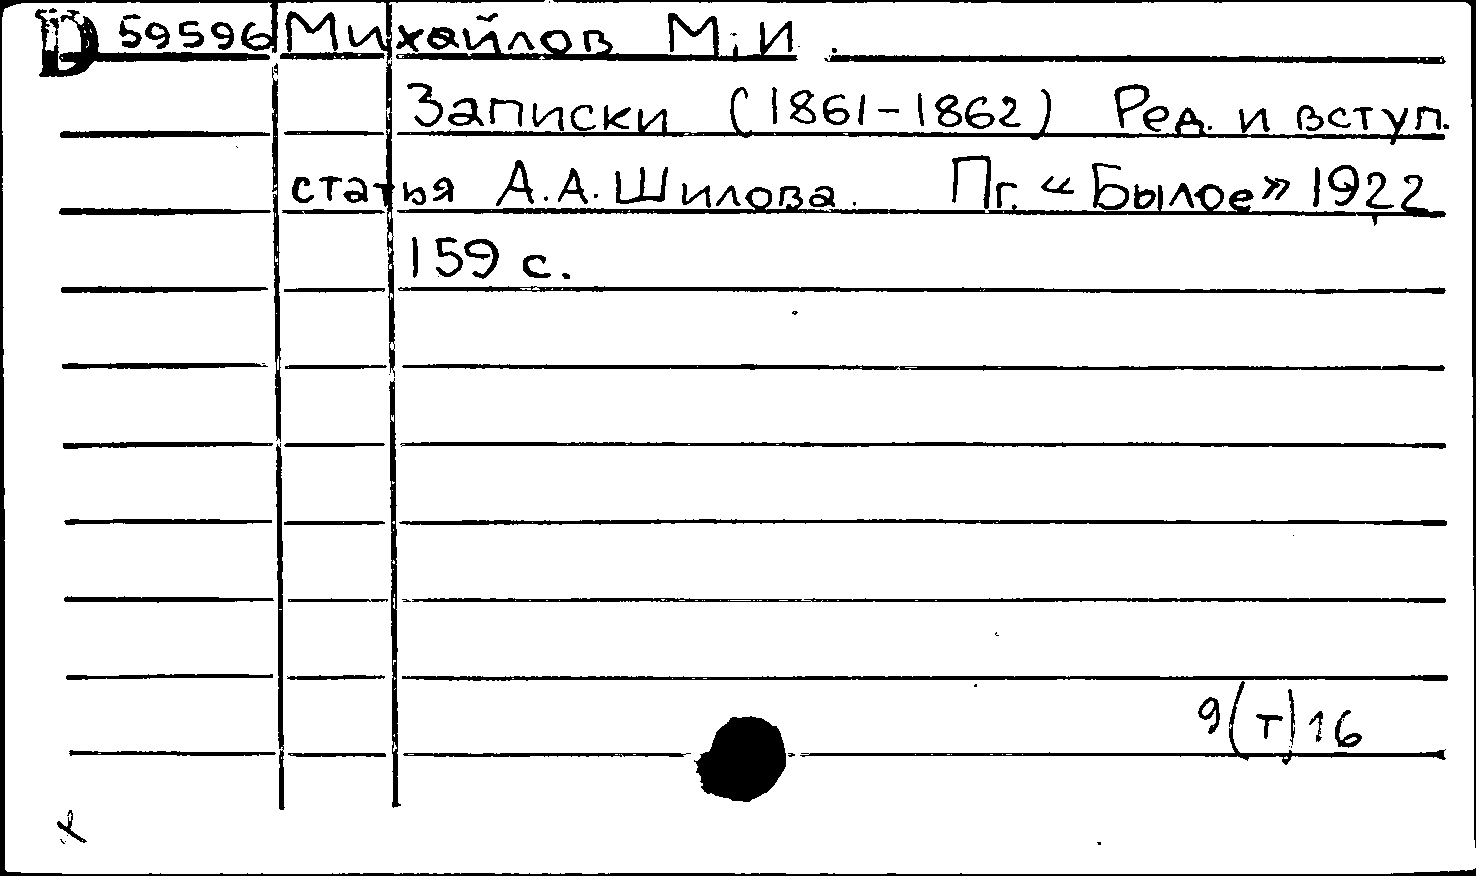 D 59596 Михайлов М.И.
Записки (1861-1862) Ред. и вступ.
статья А.А.Шилова. Пг. "Былое" 1922
159 с.
9(т)16